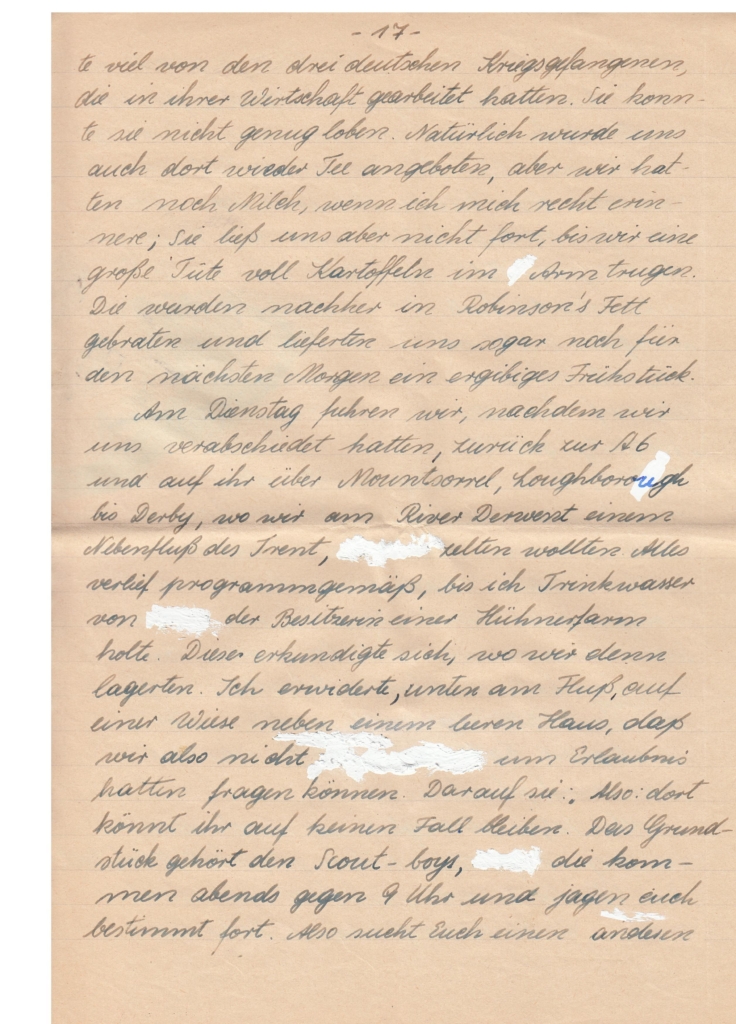 - 17 -
te viel von den drei deutschen Kriegsgefangenen,
die in ihrer Wirtschaft gearbeitet hatten. Sie konn-
te sie nicht genug loben. Natürlich wurde uns
auch dort wieder Tee angeboten, aber wir hat-
ten noch Milch, wenn ich mich recht erin-
nere; Sie ließ uns aber nicht fort, bis wir eine
große Tüte voll Kartoffeln im Arm trugen.
Die wurden nachher in Robinson's Fett
gebraten und lieferten uns sogar noch für
den nächsten Morgen ein ergibiges Frühstück.
Am Dienstag fuhren wir, nachdem wir
uns verabschiedet hatten, zurück zur A6
und auf ihr über Mountsorrel, Loughborough
bis Derby, wo wir am River Derwent einem
Nebenfluß des Trent, zelten wollten. Alles
verlief programmgemäß, bis ich Trinkwasser
von der Besitzerin einer Hühnerfarm
holte. Diese erkundigte sich, wo wir denn
lagerten. Ich erwiderte, unten am Fluß, auf
einer Wiese neben einem leeren Haus, daß
wir also nicht um Erlaubnis
hatten fragen können. Darauf sie: Also: dort
könnt ihr auf keinen Fall bleiben. Das Grund-
stück gehört den Scout-boys, die kom-
men abends gegen 9 Uhr und jagen euch
bestimmt fort. Also sucht Euch einen anderen